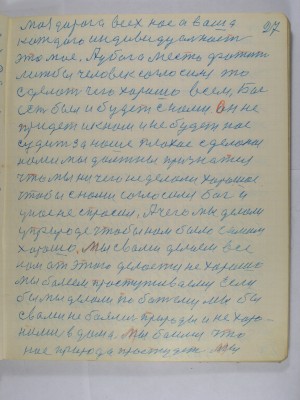 моя дорога всех нас а ваша 27
каждого индивидуальность
это моя. А у бога место
лишь бы человек согласил это
сделать чего хорошо всем, Бог
есть был и будет с нами Он не
придет и к нам и не будет нас
судить за наше плохое сделанное
нами мы должны признаться
что мы ничего не делали хорошое
чтобы с нами согласился Бог и
у нас не спросил, А чего мы делали
у природе чтобы нам было самим
хорошо, Мы с вами делаем все
нам от этого делается не хорошо
мы болеем простуживаемся Если
бы мы делали по божему, мы бы
с вами не болели природы и не хоро-
нили в дома, Мы боимся что
нас природа простудит Мы